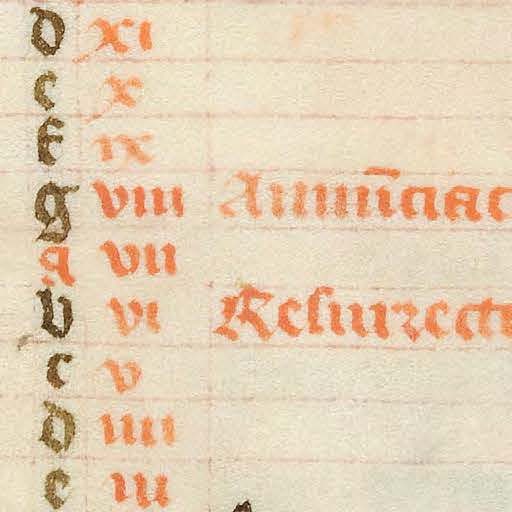 d xi
c x
E ix
g viii Annūciac
A vii
b vi Resurrecti
c v
d iiii
e iii